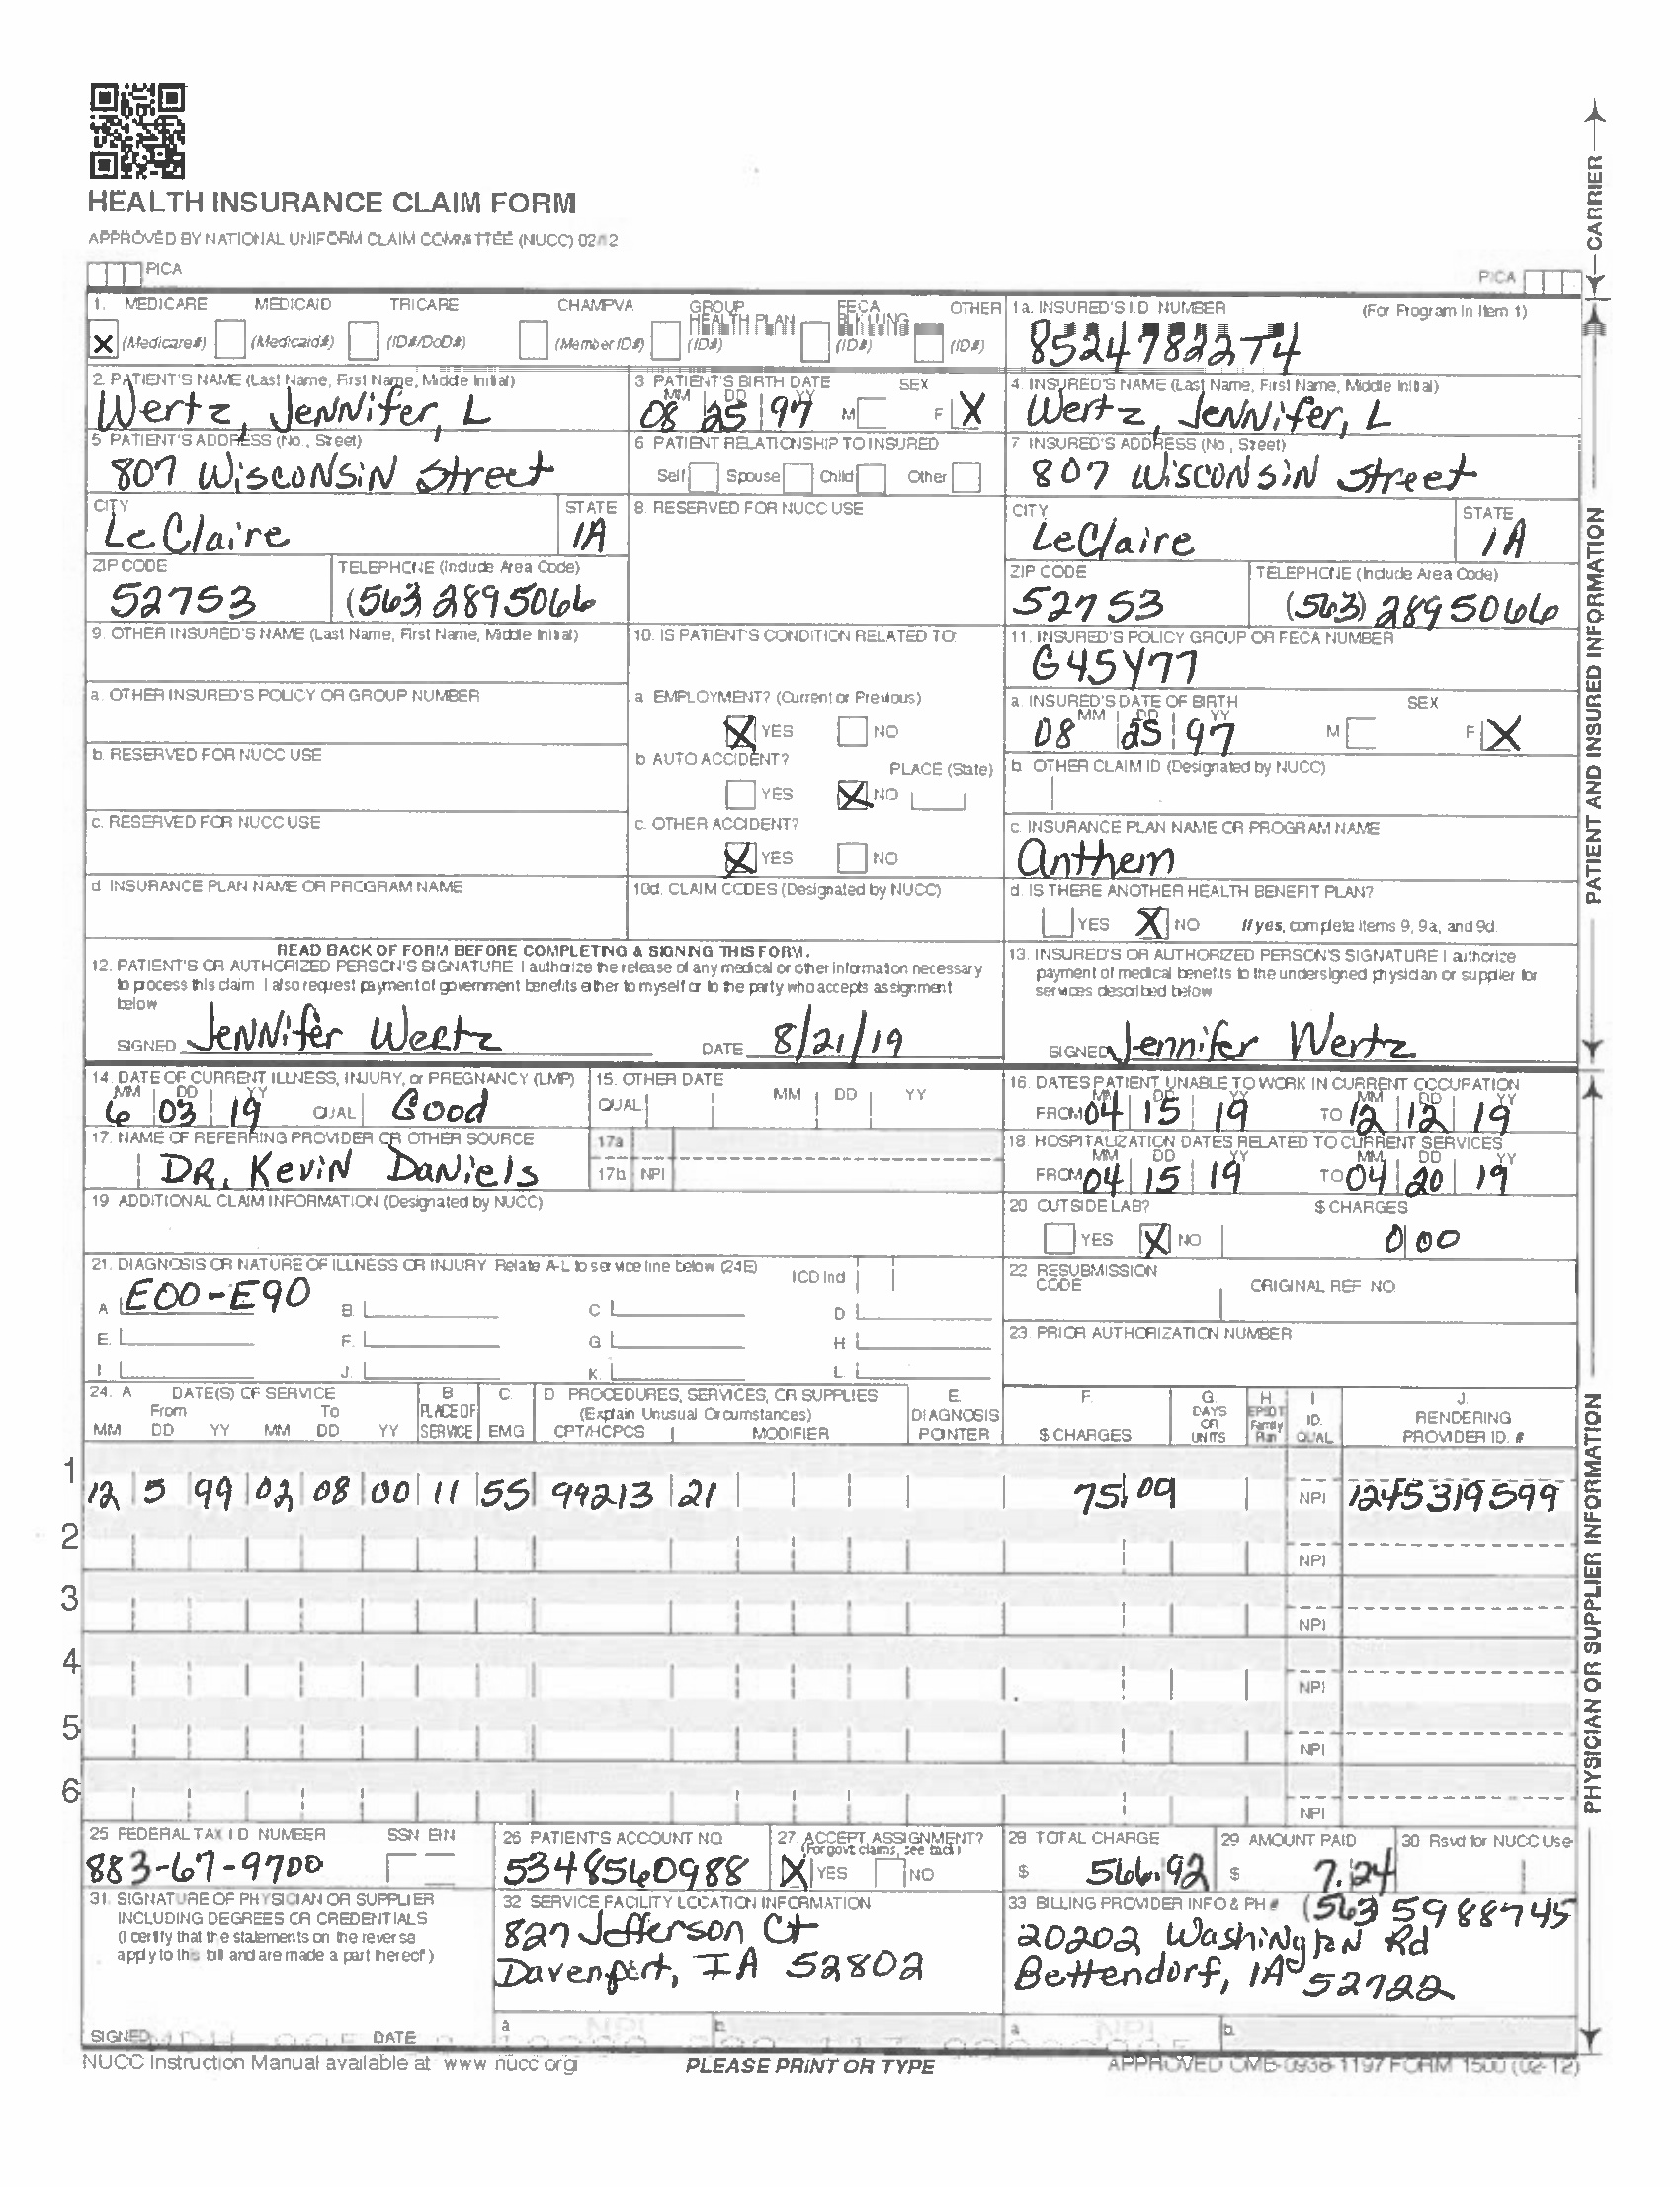 HEALTH INSURANCE CLAIM FORM
APPROVED BY NATIONAL UNIFORM CLAIM COMMITTEE (NUCC) 02/12
PICA
PICA
CARRIER
1. MEDICARE MEDICAID TRICARE CHAMPVA GROUP HEALTH PLAN FECA BLK LUNG OTHER
X (Medicare#) (Medicaid#) (ID#/DoD#) (Member ID#) (ID#) (ID#) (ID#)
1a. INSURED'S I.D. NUMBER (For Program in Item 1)
85247822T4
2. PATIENT'S NAME (Last Name, First Name, Middle Initial)
Wertz, Jennifer, L
3 PATIENT'S BIRTH DATE SEX
MM DD YY
08 25 97 M F X
4. INSURED'S NAME (Last Name, First Name, Middle Initial)
Wertz, Jennifer, L
5 PATIENT'S ADDRESS (No., Street)
807 Wisconsin Street
6 PATIENT RELATIONSHIP TO INSURED
Self Spouse Child Other
7 INSURED'S ADDRESS (No., Street)
807 Wisconsin Street
CITY STATE
LeClaire IA
8. RESERVED FOR NUCC USE
CITY STATE
LeClaire IA
ZIP CODE TELEPHONE (Include Area Code)
52753 (563) 2895066
ZIP CODE TELEPHONE (Include Area Code)
52753 (563) 2895066
9. OTHER INSURED'S NAME (Last Name, First Name, Middle Initial)
10. IS PATIENT'S CONDITION RELATED TO:
11. INSURED'S POLICY GROUP OR FECA NUMBER
G45Y77
a. OTHER INSURED'S POLICY OR GROUP NUMBER
a EMPLOYMENT? (Current or Previous)
X YES NO
a. INSURED'S DATE OF BIRTH SEX
MM DD YY
08 25 97 M F X
b. RESERVED FOR NUCC USE
b AUTO ACCIDENT? PLACE (State)
YES X NO
b. OTHER CLAIM ID (Designated by NUCC)
c. RESERVED FOR NUCC USE
c. OTHER ACCIDENT?
X YES NO
c. INSURANCE PLAN NAME OR PROGRAM NAME
Anthem
d INSURANCE PLAN NAME OR PROGRAM NAME
10d. CLAIM CODES (Designated by NUCC)
d. IS THERE ANOTHER HEALTH BENEFIT PLAN?
YES X NO If yes, complete items 9, 9a, and 9d.
PATIENT AND INSURED INFORMATION
READ BACK OF FORM BEFORE COMPLETING & SIGNING THIS FORM.
12. PATIENT'S OR AUTHORIZED PERSON'S SIGNATURE I authorize the release of any medical or other information necessary
to process this claim. I also request payment of government benefits either to myself or to the party who accepts assignment
below
SIGNED Jennifer Wertz DATE 8/21/19
13. INSURED'S OR AUTHORIZED PERSON'S SIGNATURE I authorize
payment of medical benefits to the undersigned physician or supplier for
services described below
SIGNED Jennifer Wertz
14. DATE OF CURRENT ILLNESS, INJURY, or PREGNANCY (LMP)
MM DD YY
6 03 19 QUAL Good
15. OTHER DATE
QUAL MM DD YY
16. DATES PATIENT UNABLE TO WORK IN CURRENT OCCUPATION
MM DD YY MM DD YY
FROM 04 15 19 TO 12 12 19
17. NAME OF REFERRING PROVIDER OR OTHER SOURCE
DR. Kevin Daniels
17a
17b NPI
18. HOSPITALIZATION DATES RELATED TO CURRENT SERVICES
MM DD YY MM DD YY
FROM 04 15 19 TO 04 20 19
19 ADDITIONAL CLAIM INFORMATION (Designated by NUCC)
20 OUTSIDE LAB? $ CHARGES
YES X NO 0 00
21. DIAGNOSIS OR NATURE OF ILLNESS OR INJURY Relate A-L to service line below (24E) ICD Ind
A. E00-E90 B. C D
E. F. G H
I. J. K. L.
22 RESUBMISSION
CODE ORIGINAL REF. NO.
23. PRIOR AUTHORIZATION NUMBER
24. A DATE(S) OF SERVICE B C. D PROCEDURES, SERVICES, OR SUPPLIES E. F. G. H I J.
From To PLACE OF (Explain Unusual Circumstances) DIAGNOSIS DAYS OR UNITS EPSDT Family Plan ID. RENDERING
MM DD YY MM DD YY SERVICE EMG CPT/HCPCS MODIFIER POINTER $ CHARGES QUAL PROVIDER ID. #
1
12 5 99 02 08 00 11 55 99213 21 75.09 NPI 1245319599
2
NPI
3
NPI
4
NPI
5
NPI
6
NPI
25 FEDERAL TAX I.D. NUMBER SSN EIN
883-67-9700
26 PATIENT'S ACCOUNT NO.
5348560988
27. ACCEPT ASSIGNMENT?
(For govt. claims, see back)
X YES NO
28 TOTAL CHARGE
$ 566.92
29 AMOUNT PAID
$ 7.24
30 Rsvd for NUCC Use
31. SIGNATURE OF PHYSICIAN OR SUPPLIER
INCLUDING DEGREES OR CREDENTIALS
(I certify that the statements on the reverse
apply to this bill and are made a part thereof.)
SIGNED DATE
32 SERVICE FACILITY LOCATION INFORMATION
827 Jefferson Ct
Davenport, IA 52802
a. NPI b.
33 BILLING PROVIDER INFO & PH # (563 5988745
20202 Washington Rd
Bettendorf, IA 52722
a. NPI b.
PHYSICIAN OR SUPPLIER INFORMATION
NUCC Instruction Manual available at: www.nucc.org
PLEASE PRINT OR TYPE
APPROVED OMB-0938-1197 FORM 1500 (02-12)